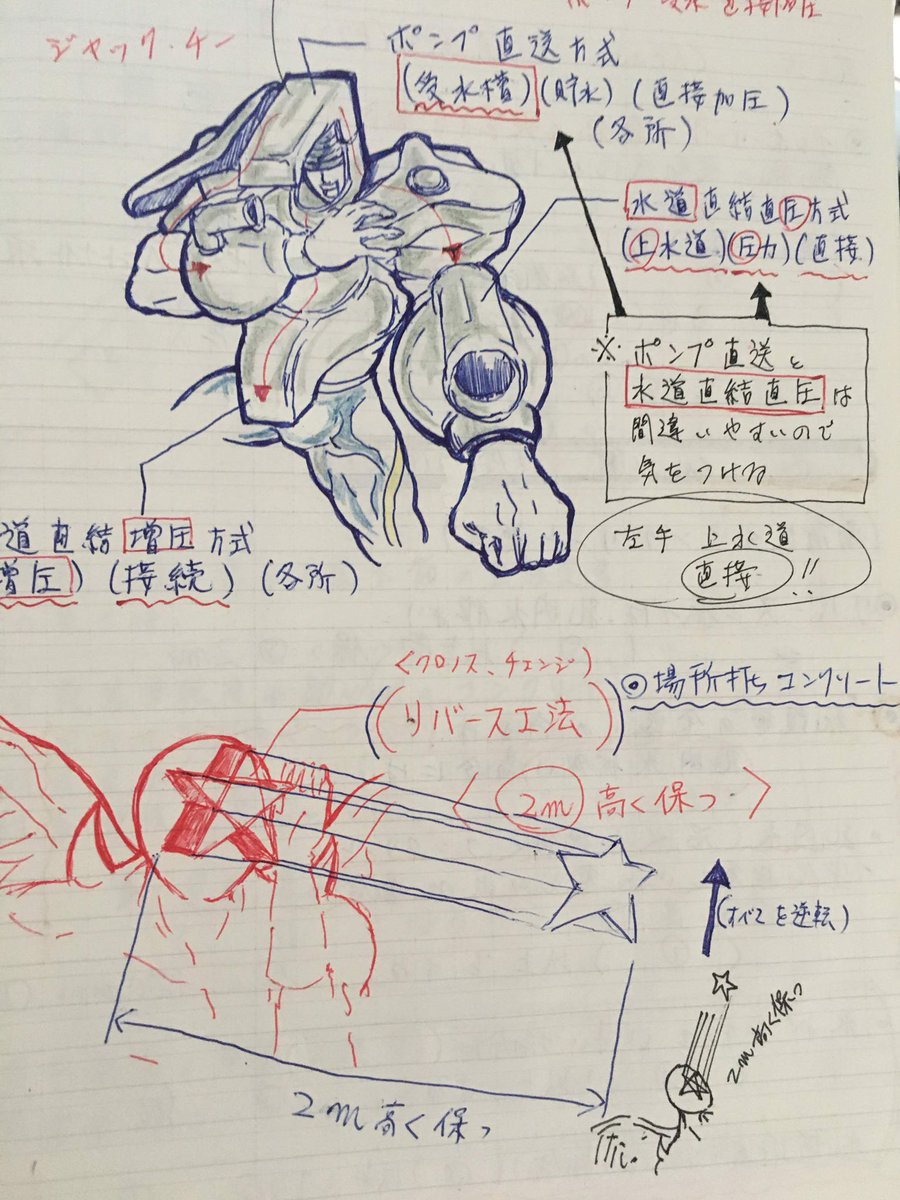 ジャック・チー
ポンプ直送方式
(受水槽)(貯水)(直接加圧)
(各所)
水道直結直圧方式
(上水道)(圧力)(直接)
※ポンプ直送と
水道直結直圧は
間違いやすいので
気をつける
左手 上水道
直接!!
道直結増圧方式
増圧)(接続)(各所)
〈クロノス、チェンジ〉
(リバース工法)
◎場所打ちコンクリート
〈2m高く保つ〉
(すべてを逆転)
2m高く保つ
2m高く保つ